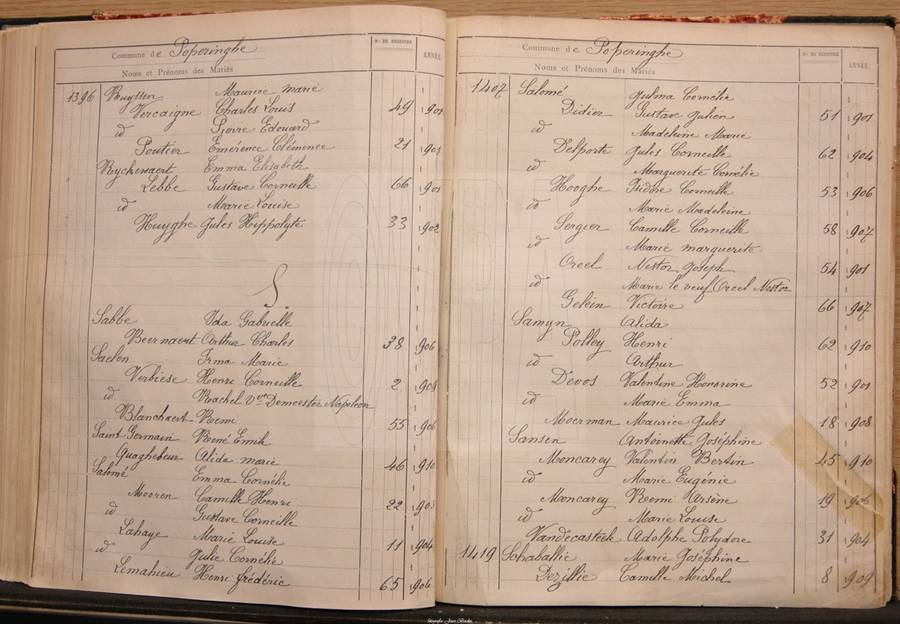 Commune de Poperinghe
Nos DE REGISTRE
ANNÉE.
Noms et Prénoms des Mariés
1396 Ruyssen Maurice Marie
Vercaigne Charles Louis 49 1901
id Pierre Edouard
Poutier Emérence Clémence 21 1901
Ryckewaert Emma Elisabeth
Lebbe Gustave Corneille 66 1901
id Marie Louise
Huyghe Jules Hippolyte 33 1902
S
Sabbe Ida Gabrielle
Beernaert Arthur Charles 38 1906
Saelen Irma Marie
Verbiese Henri Corneille 2 1904
id Rachel Vve Demeester Napoleon
Blanchaert Remi 55 1906
Saint Germain René Emile
Quaghebeur Alida Marie 46 1910
Salomé Emma Cornélie
Meeren Camille Henri 22 1903
id Gustave Corneille
Lahaye Marie Louise 11 1904
id Julie Cornélie
Lemahieu Henri frédéric 65 1906
Commune de Poperinghe
Nos DE REGISTRE
ANNÉE.
Noms et Prénoms des Mariés
1407 Salomé Zulma Cornélie
Didier Gustave Julien 51 1901
id Madeleine Marie
Delporte Jules Corneille 62 1904
id Marguerite Cornélie
Hooghe Isidore Corneille 53 1906
id Marie Madeleine
Sergier Camille Corneille 58 1907
id Marie Marguerite
Oreel Nestor Joseph 54 1901
id Marie le veuf Oreel Nestor
Gelein Victoire 66 1907
Samyn Alida
Polley Henri 62 1910
id Arthur
Devos Valentine Honorine 52 1901
id Marie Emma
Moerman Maurice Jules 18 1908
Sansen Antoinette Joséphine
Moncarey Valentin Bertin 45 1910
id Marie Eugénie
Moncarey Remi Arsène 19 1906
id Marie Louise
Vandecasteele Adolphe Polydore 31 1904
1419 Schaballie Marie Joséphine
Dezillie Camille Michel 8 1909